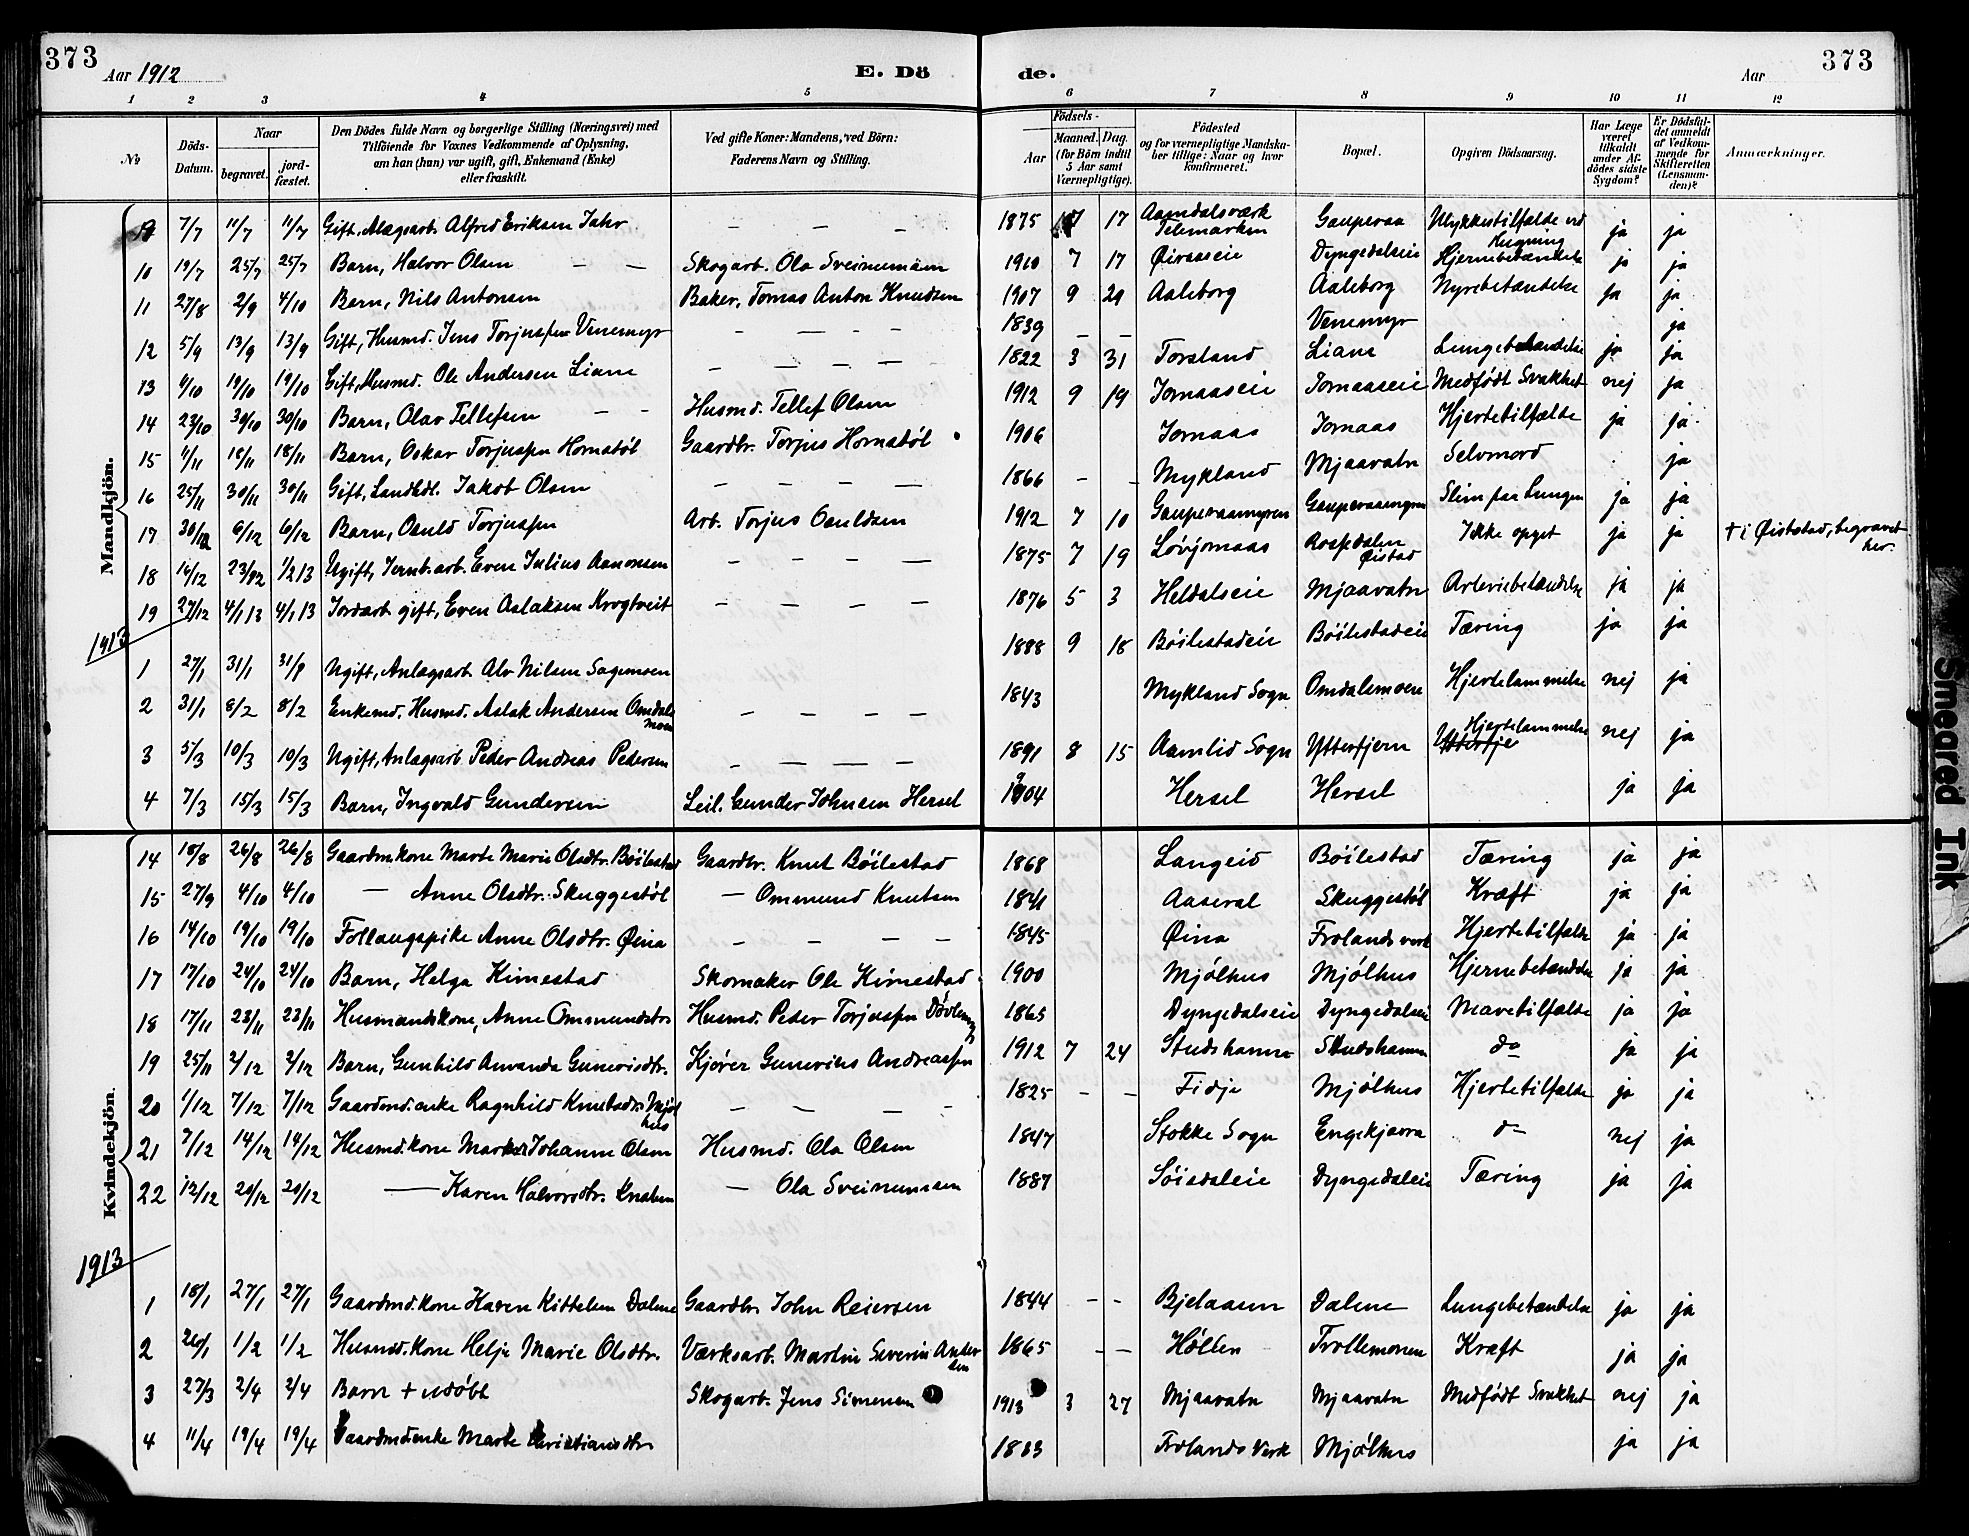 373
Aar 1912
E. Dö de.
Aar
373
1 2 3 4 5 6 7 8 9 10 11 12
No
Döds-Datum.
Naar
begravet.
jord-fæstet.
Den Dödes fulde Navn og borgerlige Stilling (Næringsvei) med
Tilföiende for Voxnes Vedkommende af Oplysning,
om han (hun) var ugift, gift, Enkemand (Enke)
eller fraskilt.
Ved gifte Koner: Mandens, ved Börn:
Faderens Navn og Stilling.
Födsels-
Aar
Maaned. Dag.
(for Börn indtil
5 Aar samt
Værnepligtige).
Födested
og for værnepligtige Mandska-
ber tillige: Naar og hvor
konfirmeret.
Bopæl.
Opgiven Dödsaarsag.
Har Læge
været
tilkaldt
under Af-
dödes sidste
Sygdom?
Er Dödsfal-
det anmeldt
af Vedkom-
mende for
Skifteretten
(Lensman-
den)?
Anmærkninger.
Mandkjön.
9 7/7 11/7 11/7 Gift, Alægsarb. Alfred Eriksen Jahr — — — 1875 7 17 Aamdalsværk Telemarken Gauperaa Ulykkestilfælde ved ja ja
10 19/7 25/7 25/7 Barn, Halvor Olsen — — Skogarb. Ola Sveinunsøn 1910 7 17 Øiraaseie Dyngedalseie Hjernebetændelse ja ja
11 27/8 2/9 4/10 Barn, Nils Antonsen Baker, Tomas Anton Knudsen 1907 9 29 Aaleborg Aaleborg Nyrebetændelse ja ja
12 5/9 13/9 13/9 Gift, Husmd. Jens Torjussen Venemyr — — — — 1839 — — Venemyr ja
13 4/10 19/10 19/10 Gift, Husmd. Ole Andersen Liane — — — — 1822 3 31 Torsland Liane Lungebetændelse ja ja
14 23/10 30/10 30/10 Barn, Olav Tellefsen — — Husmd. Tellef Olsen 1912 9 19 Jomaaseie Jomaaseie Medfödt Svakhet nej ja
15 11/11 18/11 18/11 Barn, Oskar Torjussen Homstöl Gaardbr. Torjus Homstöl 1906 Jomaas Jomaas Hjertetilfælde ja ja
16 25/11 30/11 30/11 Gift, Landhdl. Jakob Olsen — — — — 1866 — — Mykland Mjaavatn Selvmord ja
17 30/12 6/12 6/12 Barn, Osuld Torjussen Arb. Torjus Osuldsen 1912 7 10 Gauperaamyren Gauperaamyren Slim paa Lungen ja ja
18 16/12 23/12 1/2 13 Ugift, Jernb. arb. Even Julius Aanonsen — — — — 1875 7 19 Lövjomaas Øistad Ikke opget ja ja + i Øistad, begravet her.
19 27/12 4/1 13 4/1 13 Jordarb. gift, Even Aslaksen Krogtveit — — — — 1876 5 3 Heldalseie Mjaavatn Arteriebetændelse ja ja
1913
1 27/1 31/1 Ugift, Anlægsarb. Alv Nilsen Sagemoen 1888 9 18 Böilestadeie Böilestadeie Tæring ja ja
2 31/1 8/2 8/2 Enkemd. Husmd. Aslak Andersen Omdalsmoen — — — — 1843 Mykland Sogn Omdalsmoen Hjertelammelse nej ja
3 5/3 10/3 10/3 Ugift, Anlægsarb. Peder Andreas Pedersen — — — — 1891 8 15 Aamlid Sogn Ytterfjern Hjertelammelse nej ja
4 7/3 15/3 15/3 Barn, Ingvald Gundersen Leil. Gunder Johnsen Hersel 1904 Hersel Hersel ja ja
Kvindekjön.
14 18/8 26/8 26/8 Gaardm.kone Marte Marie Olsdtr. Böilestad Gaardbr. Knut Böilestad 1868 Langeid Böilestad Tæring ja ja
15 27/9 4/10 4/10 — Anne Olsdtr. Skuggestöl — Ommund Knutsen 1841 Aaseral Skuggestöl Kræft ja ja
16 14/10 19/10 19/10 Follaugspike Anne Olsdtr. Øina — — — — 1845 Øina Frolands verk Hjertetilfælde ja ja
17 17/10 24/10 24/10 Barn, Helga Kimestad Skomaker Ole Kimestad 1900 Mjölhus Mjölhus Hjernebetændelse ja ja
18 17/11 23/11 23/11 Husmandskone, Anne Ommundsdtr. Husmd. Peder Torjussen 1865 Dyngedalseie Dyngedalseie Mavetilfælde ja ja
19 25/11 2/12 2/12 Barn, Gunhild Amanda Gunerisdtr. Kjører Gunerius Andreassen 1912 7 24 Studshamn Studshamn do ja ja
20 1/12 7/12 7/12 Gaardmd.enke Ragnhild Knutsdtr. Mjölhus — — — — 1825 — — Fidje Mjölhus Hjertetilfælde ja ja
21 7/12 14/12 14/12 Husmd.kone Johanne Olsen Husmd. Ola Olsen 1847 Stokke Sogn Engekjærra do nej ja
22 12/12 20/12 20/12 — Karen Halvorsdtr. — Ola Sveinunsen 1887 Söisdaleie Dyngedaleie Tæring ja ja
1913
1 18/1 27/1 27/1 Gaardmd.kone Karen Kittelsen Dalene Gaardbr. John Reiersen 1844 — — Bjelaasen Dalene Lungebetændelse ja ja
2 26/1 1/2 1/2 Husmd.kone Helje Marie Olsdtr. Værksarb. Martin Severin Andersen 1865 — — Hölen Trollemoen Kræft ja ja
3 27/3 2/4 2/4 Barn + udöbt Skogarb. Jens Simensen 1913 3 27 Mjaavatn Mjaavatn Medfödt Svakhet nej ja
4 11/4 19/4 19/4 Gaardmd.enke Marte Christiansdtr. 1833 Frolands Verk Mjölhus ja ja
Smeared Ink